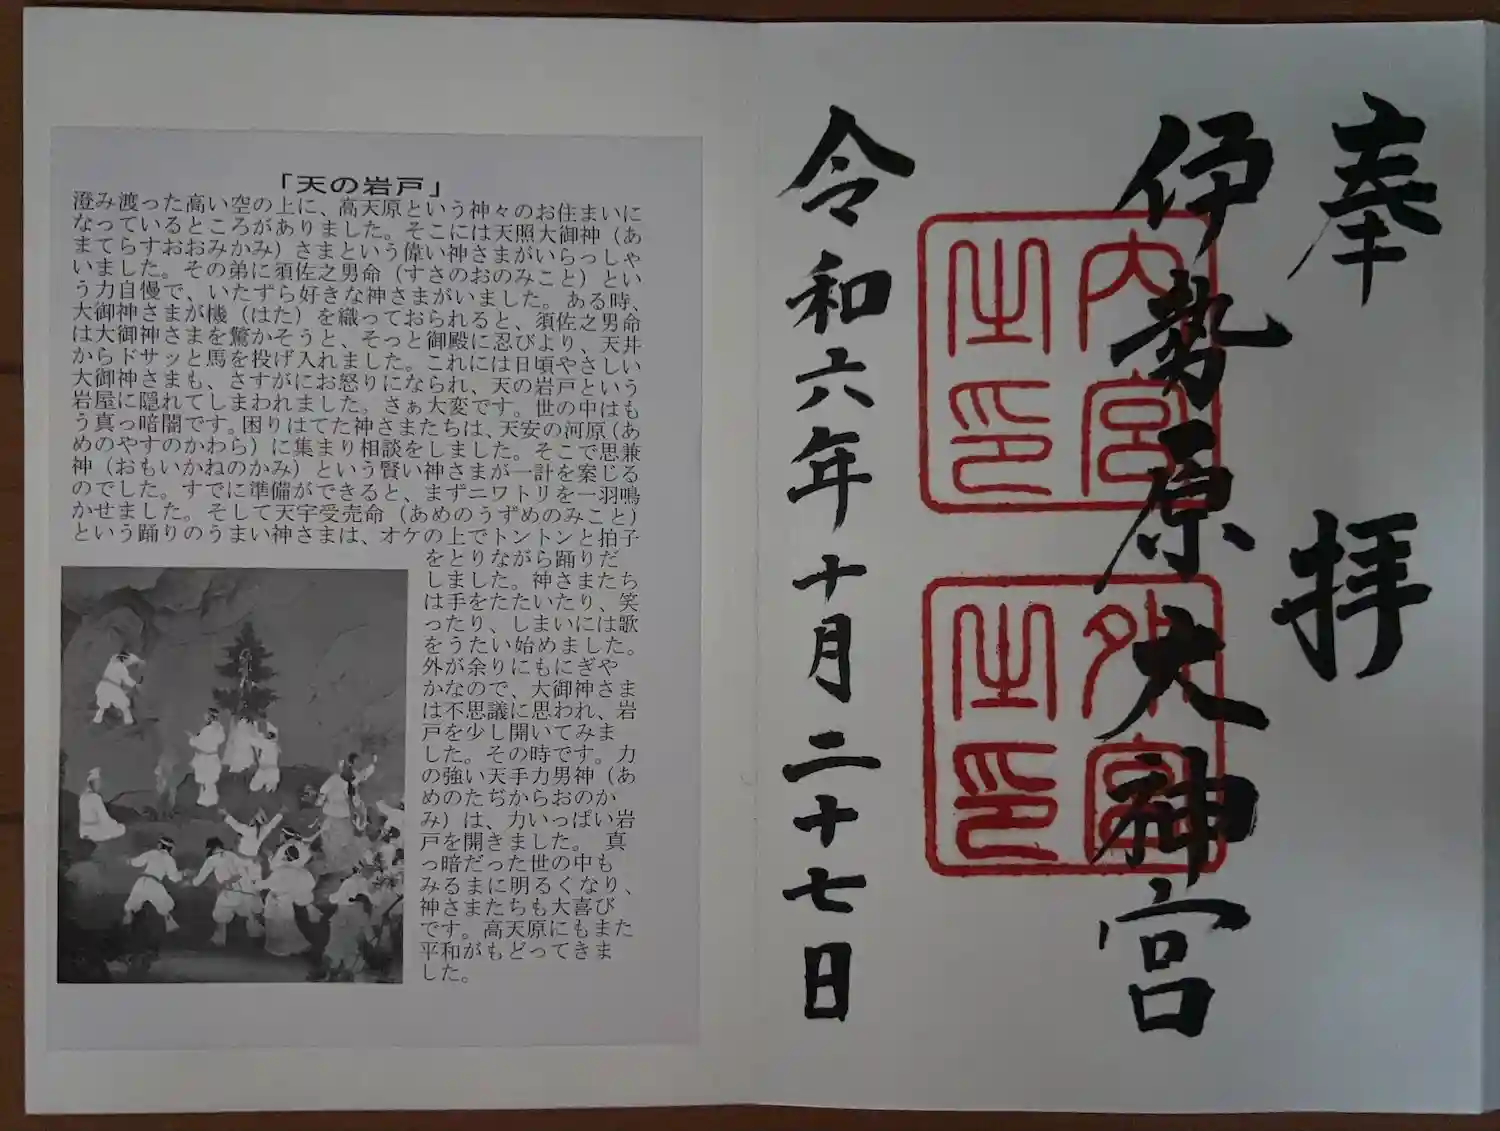 奉拝
伊勢原大神宮
内宮
之印
外宮
之印
令和六年十月二十七日
「天の岩戸」
澄み渡った高い空の上に、高天原という神々のお住まいに
なっているところがありました。そこには天照大御神（あ
まてらすおおみかみ）さまという偉い神さまがいらっしゃ
いました。その弟に須佐之男命（すさのおのみこと）とい
う力自慢で、いたずら好きな神さまがいました。ある時、
大御神さまが機（はた）を織っておられると、須佐之男命
は大御神さまを驚かそうと、そっと御殿に忍びより、天井
からドサッと馬を投げ入れました。これには日頃やさしい
大御神さまも、さすがにお怒りになられ、天の岩戸という
岩屋に隠れてしまわれました。さぁ大変です。世の中はも
う真っ暗闇です。困りはてた神さまたちは、天安の河原（あ
めのやすのかわら）に集まり相談をしました。そこで思兼
神（おもいかねのかみ）という賢い神さまが一計を案じる
のでした。すでに準備ができると、まずニワトリを一羽鳴
かせました。そして天宇受売命（あめのうずめのみこと）
という踊りのうまい神さまは、オケの上でトントンと拍子
をとりながら踊りだ
しました。神さまたち
は手をたたいたり、笑
ったり、しまいには歌
をうたい始めました。
外が余りにもにぎや
かなので、大御神さま
は不思議に思われ、岩
戸を少し開いてみま
した。その時です。力
の強い天手力男神（あ
めのたぢからおのか
み）は、力いっぱい岩
戸を開きました。 真
っ暗だった世の中も
みるまに明るくなり、
神さまたちも大喜び
です。高天原にもまた
平和がもどってきま
した。